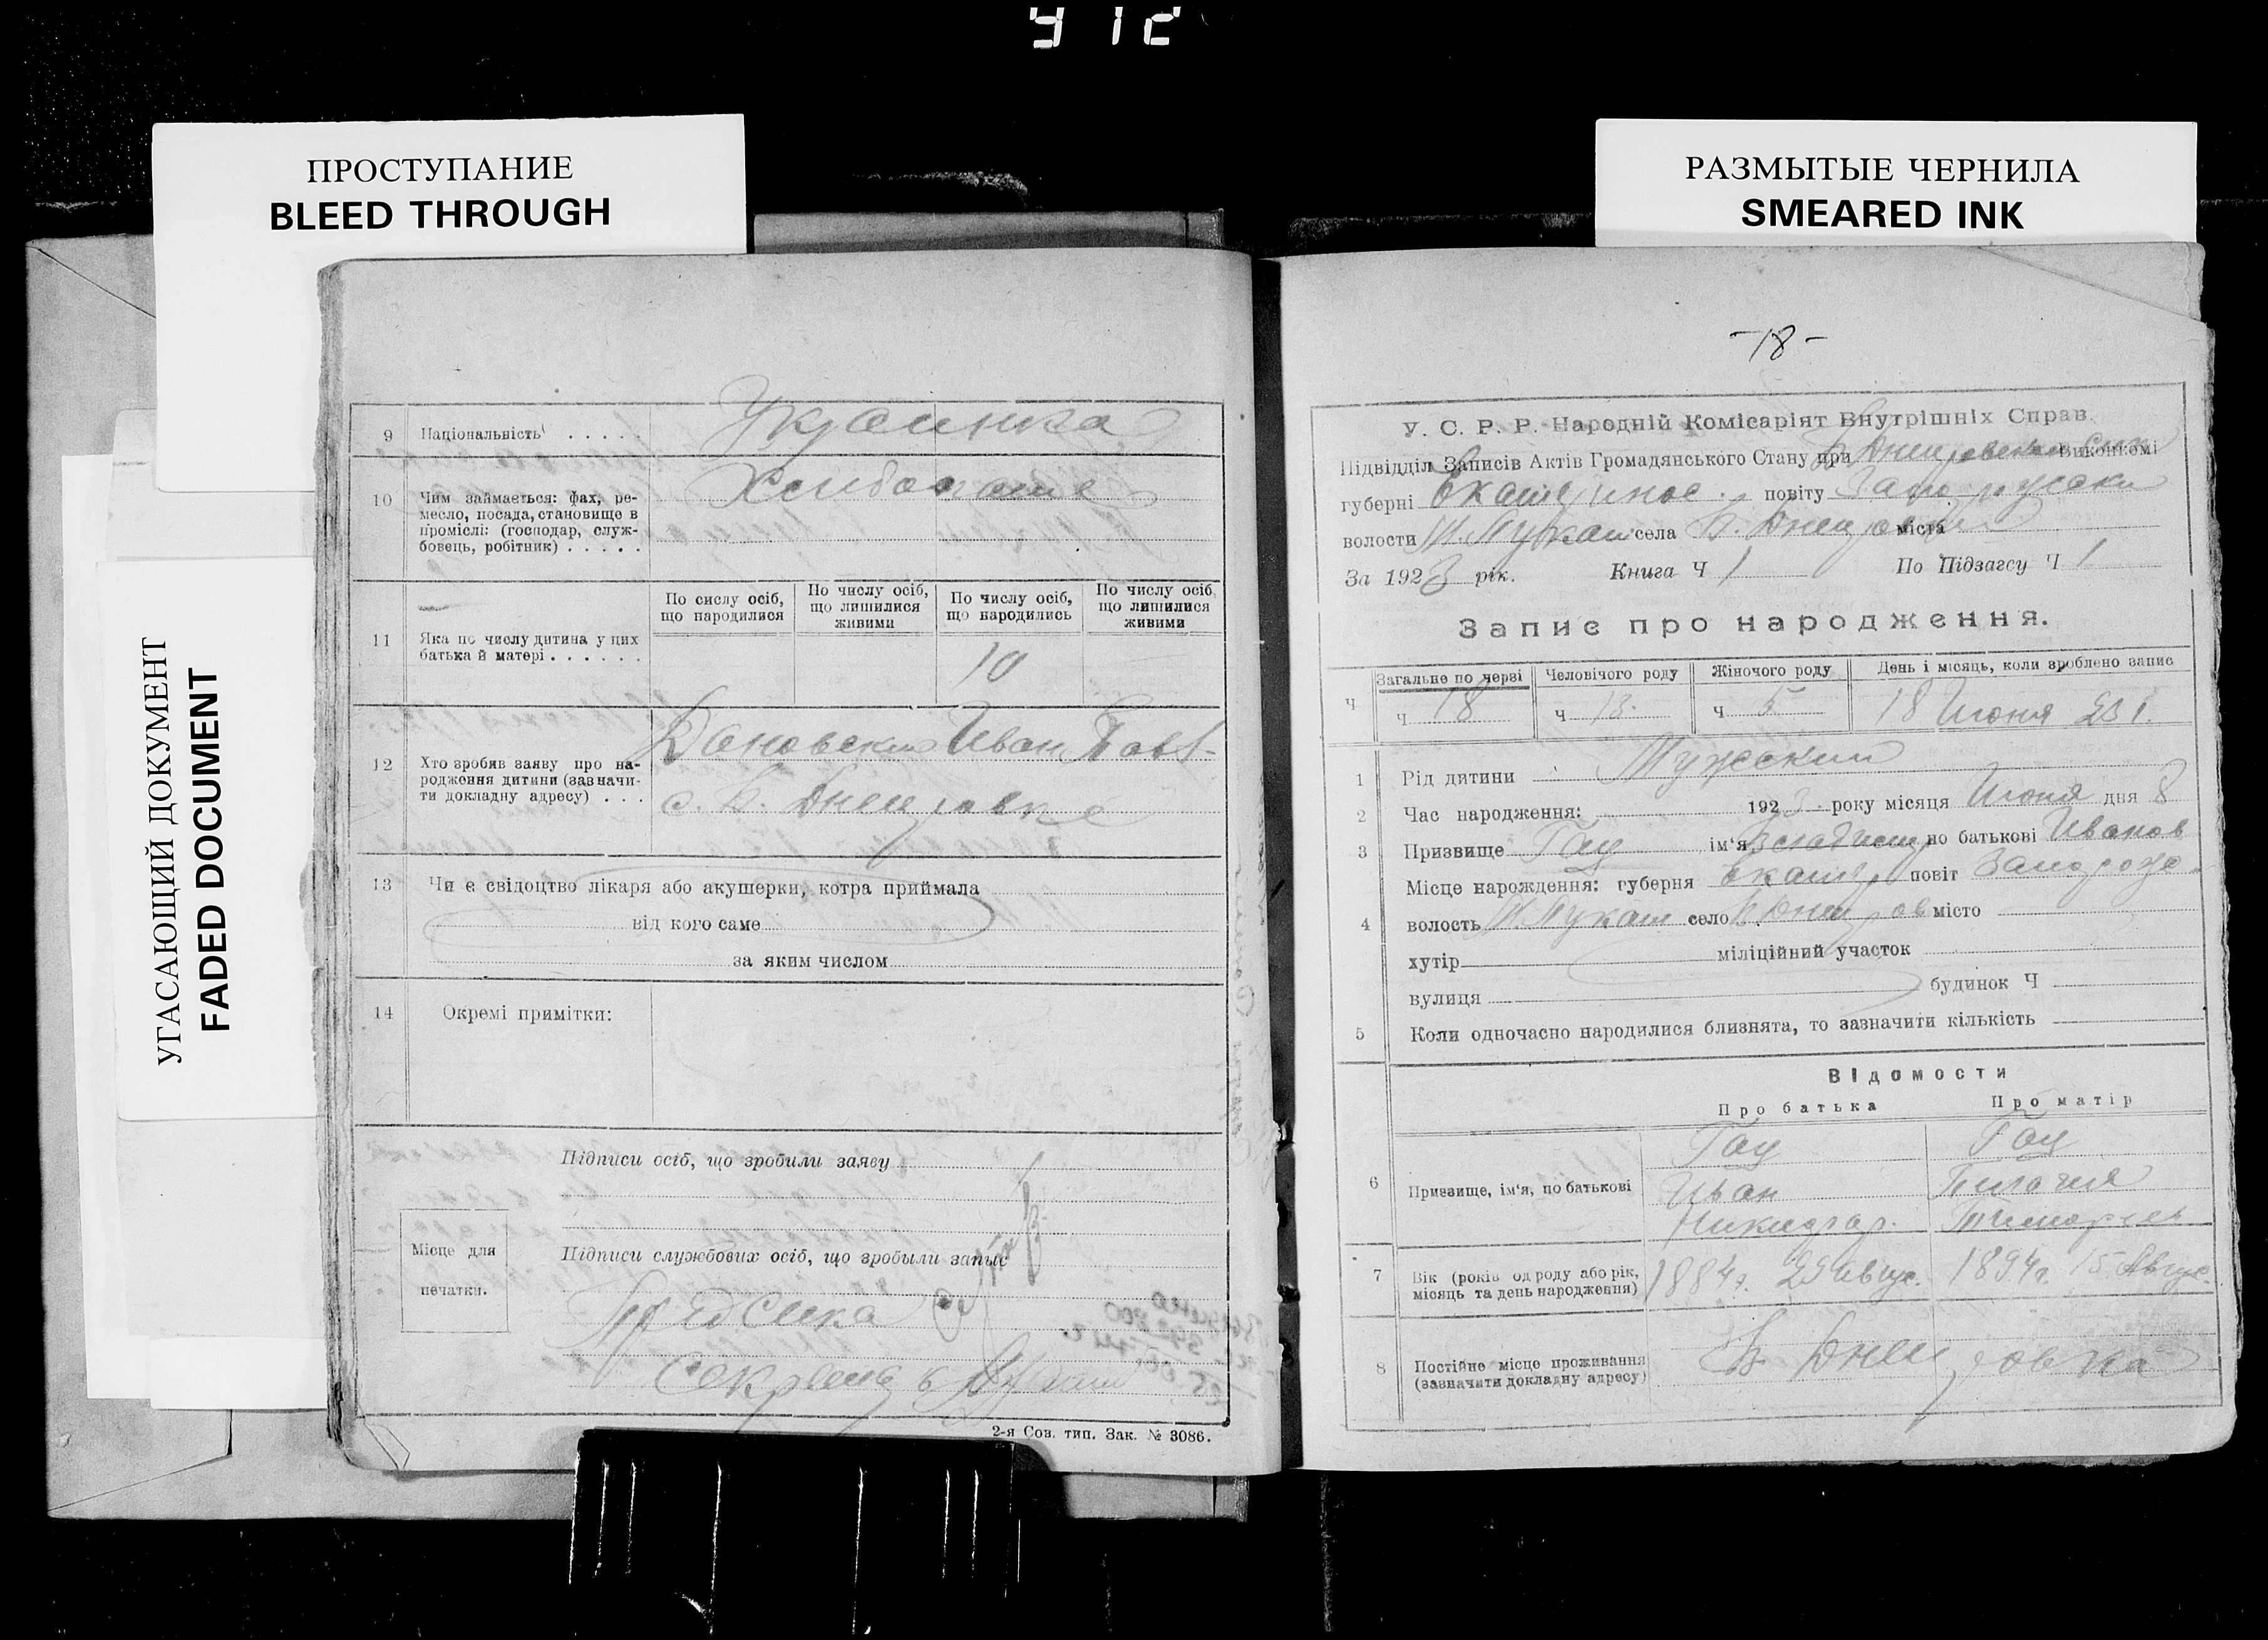 912
ПРОСТУПАНИЕ
BLEED THROUGH
РАЗМЫТЫЕ ЧЕРНИЛА
SMEARED INK
УГАСАЮЩИЙ ДОКУМЕНТ
FADED DOCUMENT
9 Національність . . . . . Украинка
10 Чим займається: фах, ре-
месло, посада, становище в
проміслі: (господар, служ-
бовець, робітник) . . . . .
11 Яка по числу дитина у цих
батька й матері . . . . . .
По сислу осіб,
що народилися
По числу осіб,
що лишилися
живими
По числу осіб,
що народились
По числу осіб,
що лишилися
живими
10
12 Хто зробив заяву про на-
родження дитини (зазначи-
ти докладну адресу) . . .
Иван Павл
с. В. Днепровке
13 Чи є свідоцтво лікаря або акушерки, котра приймала
від кого саме
за яким числом
14 Окремі примітки:
Підписи осіб, що зробили заяву
Місце для
печатки.
Підписи службових осіб, що зробыли запыс
Секретарь
2-я Сов. тип. Зак. № 3086.
-18-
У. С. Р. Р. Народній Комісаріят Внутрішніх Справ.
Підвідділ Записів Актів Громадянського Стану при виконкомі
губерні Екатеринос. повіту
волости села В. Днепровки міста
За 1923 рік. Книга Ч 1 По Підзагсу Ч 1
Запис про народження.
Ч
Загальне по черзі
Ч 18
Человічого роду
Ч 13.
Жіночого роду
Ч 5
День і місяць, коли зроблено запис
18 Июня 23 г.
1 Рід дитини Мужский
2 Час народження: 1923 року місяця Июня дня 8
3 Призвище Гац ім'я по батькові Иванов
4 Місце нарождення: губерня Екатер повіт Запорож.
волость село В Днепров місто
хутір міліційний участок
вулиця будинок Ч
5 Коли одночасно народилися близнята, то зазначити кількість
Відомости
Про батька Про матір
6 Призвище, ім'я, по батькові
Гац Гац
Иван Пилагия
7 Вік (років од роду або рік,
місяць та день народження)
1884г. 29 Август. 1894г. 15 Август.
8 Постійне місце проживання
(зазначити докладну адресу)
В. Днепровка